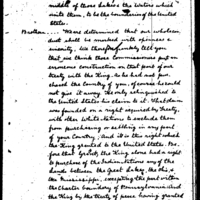 middle of those Lakes the waters which
unite them, to be the boundary of the United
States.
Brothers. . We are determined that our whole con-
duct shall be marked with openness &
sincerity. We therefore freely tell you
that we think those Commissioners put an
erroneous construction on that part of our
treaty with the King. As he had not pur-
chased the country of you, of course he could
not give it away. He only relinquished to
the United States his claim to it. That claim
was founded on a right acquired by treaty,
with other white Nations to exclude them
from purchasing or settling in any part
of your Country; And it is this right which
the King granted to the United States. Be-
fore that grant, the King alone had a right
to purchase of the Indian Nations any of the
lands between the Great Lakes, the Ohio
the Mississippi, excepting the part within
the Charter boundary of Pennsylvania: And
the King by the treaty of peace having granted